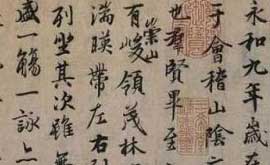 永和九年歲在
于會稽山陰
也羣賢畢至
有崇山峻領茂林
湍暎帶左右
列坐其次雖無
盛一觴一詠亦